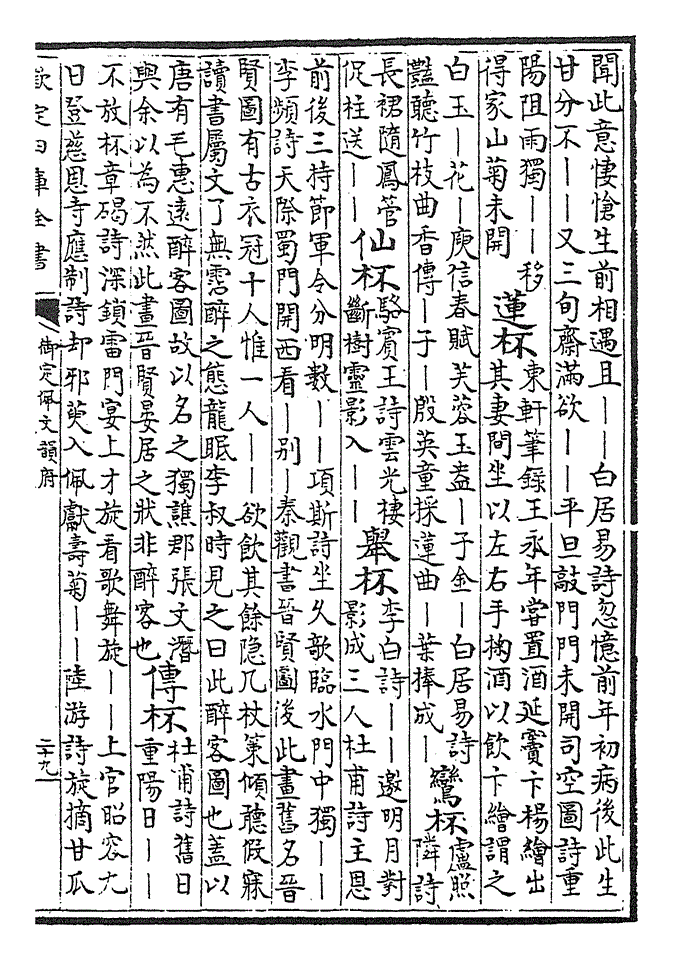 聞此意悽愴生前相遇且——白居易詩忽憶前年初病後此生
甘分不——又三旬齋滿欲——平旦敲門門未開司空圖詩重
陽阻雨獨——移
得家山菊未開
蓮杯
東軒筆錄王永年嘗置酒延竇卞楊繪出
其妻間坐以左右手掬酒以飲卞繪謂之
白玉—花—庾信春賦芙蓉玉盌—子金—白居易詩
豔聽竹枝曲香傳—子—殷英童採蓮曲—葉捧成—
鸞杯
盧照
隣詩
長裾隨鳳管
促柱送——
仙杯
駱賓王詩雲光棲
斷樹靈影入——
舉杯
李白詩——邀明月對
影成三人杜甫詩主恩
前後三持節軍令分明數——項斯詩坐久歌臨水門中獨——
李頻詩天際蜀門開西看—别—秦觀書晉賢圖後此畫舊名晉
賢圖有古衣冠十人惟一人——欲飲其餘隱几杖策傾聽假寐
讀書屬文了無霑醉之態龍眠李叔時見之曰此醉客圖也蓋以
唐有毛惠遠醉客圖故以名之獨譙郡張文潛
與余以為不然此畫晉賢宴居之狀非醉客也
傳杯
杜甫詩舊日
重陽日——
不放杯章碣詩深鎖雷門宴上才旋看歌舞旋——上官昭容九
日登慈恩寺應制詩却邪萸入佩獻壽菊——陸游詩旋摘甘瓜
欽定四庫全書
御定佩文韻府
二十九